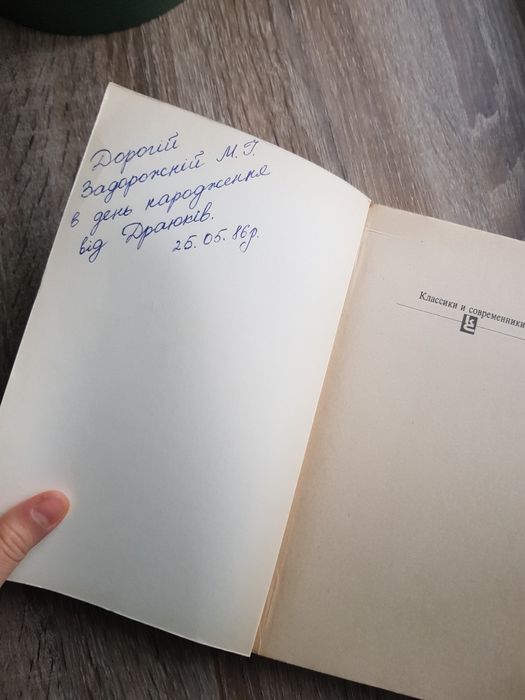 Дорогій
Задорожній М.Г.
в день народження
від Драюків.
25.05.86р.
Классики и современники